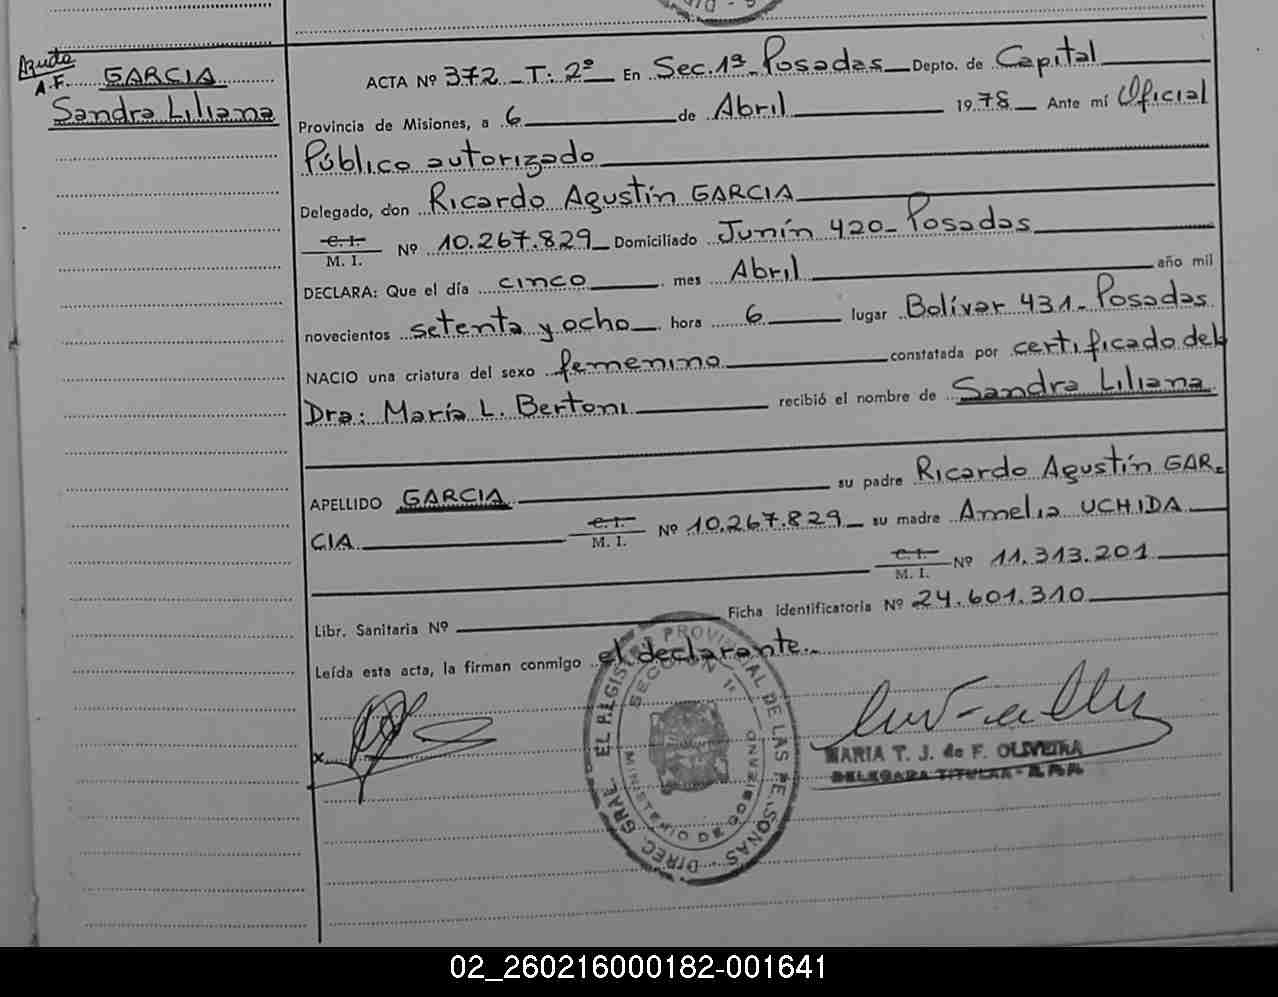 Ayuda
A.F. GARCIA
Sandra Liliana
ACTA Nº 372 - T: 2º En Sec. 1ª Posadas Depto. de Capital
Provincia de Misiones, a 6 de Abril 1978 Ante mí Oficial
Público autorizado
Delegado, don Ricardo Agustín GARCIA
C. I.
M. I. Nº 10.267.829 Domiciliado Junín 420 - Posadas
DECLARA: Que el día cinco mes Abril año mil
novecientos setenta y ocho hora 6 lugar Bolívar 431 - Posadas
NACIO una criatura del sexo femenino constatada por certificado de la
Dra: María L. Bertoni recibió el nombre de Sandra Liliana
APELLIDO GARCIA su padre Ricardo Agustín GAR-
CIA C. I. M. I. Nº 10.267.829 su madre Amelia UCHIDA
C. I. M. I. Nº 11.313.201
Libr. Sanitaria Nº Ficha identificatoria Nº 24.601.310
Leída esta acta, la firman conmigo el declarante.
DIREC. GRAL. EL REGISTRO PROVINCIAL DE LAS PERSONAS
SECCION 1ª
MINISTERIO DE GOBIERNO
MARIA T. J. de F. OLIVEIRA
DELEGADA TITULAR - R.P.P.
02_260216000182-001641